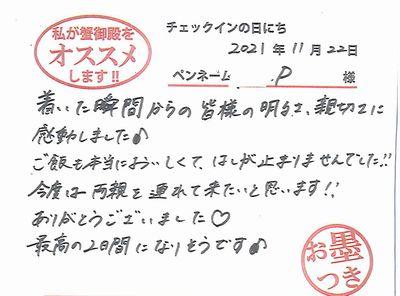 私が蟹御殿を
オススメ
します!!
チェックインの日にち
2021年11月22日
ペンネーム P 様
着いた瞬間からの皆様の明るさ、親切さに
感動しました♪
ご飯も本当においしくて、はしが止まりませんでした!!
今度は両親を連れて来たいと思います!!
ありがとうございました♡
最高の2日間になりそうです♪
お墨
つき